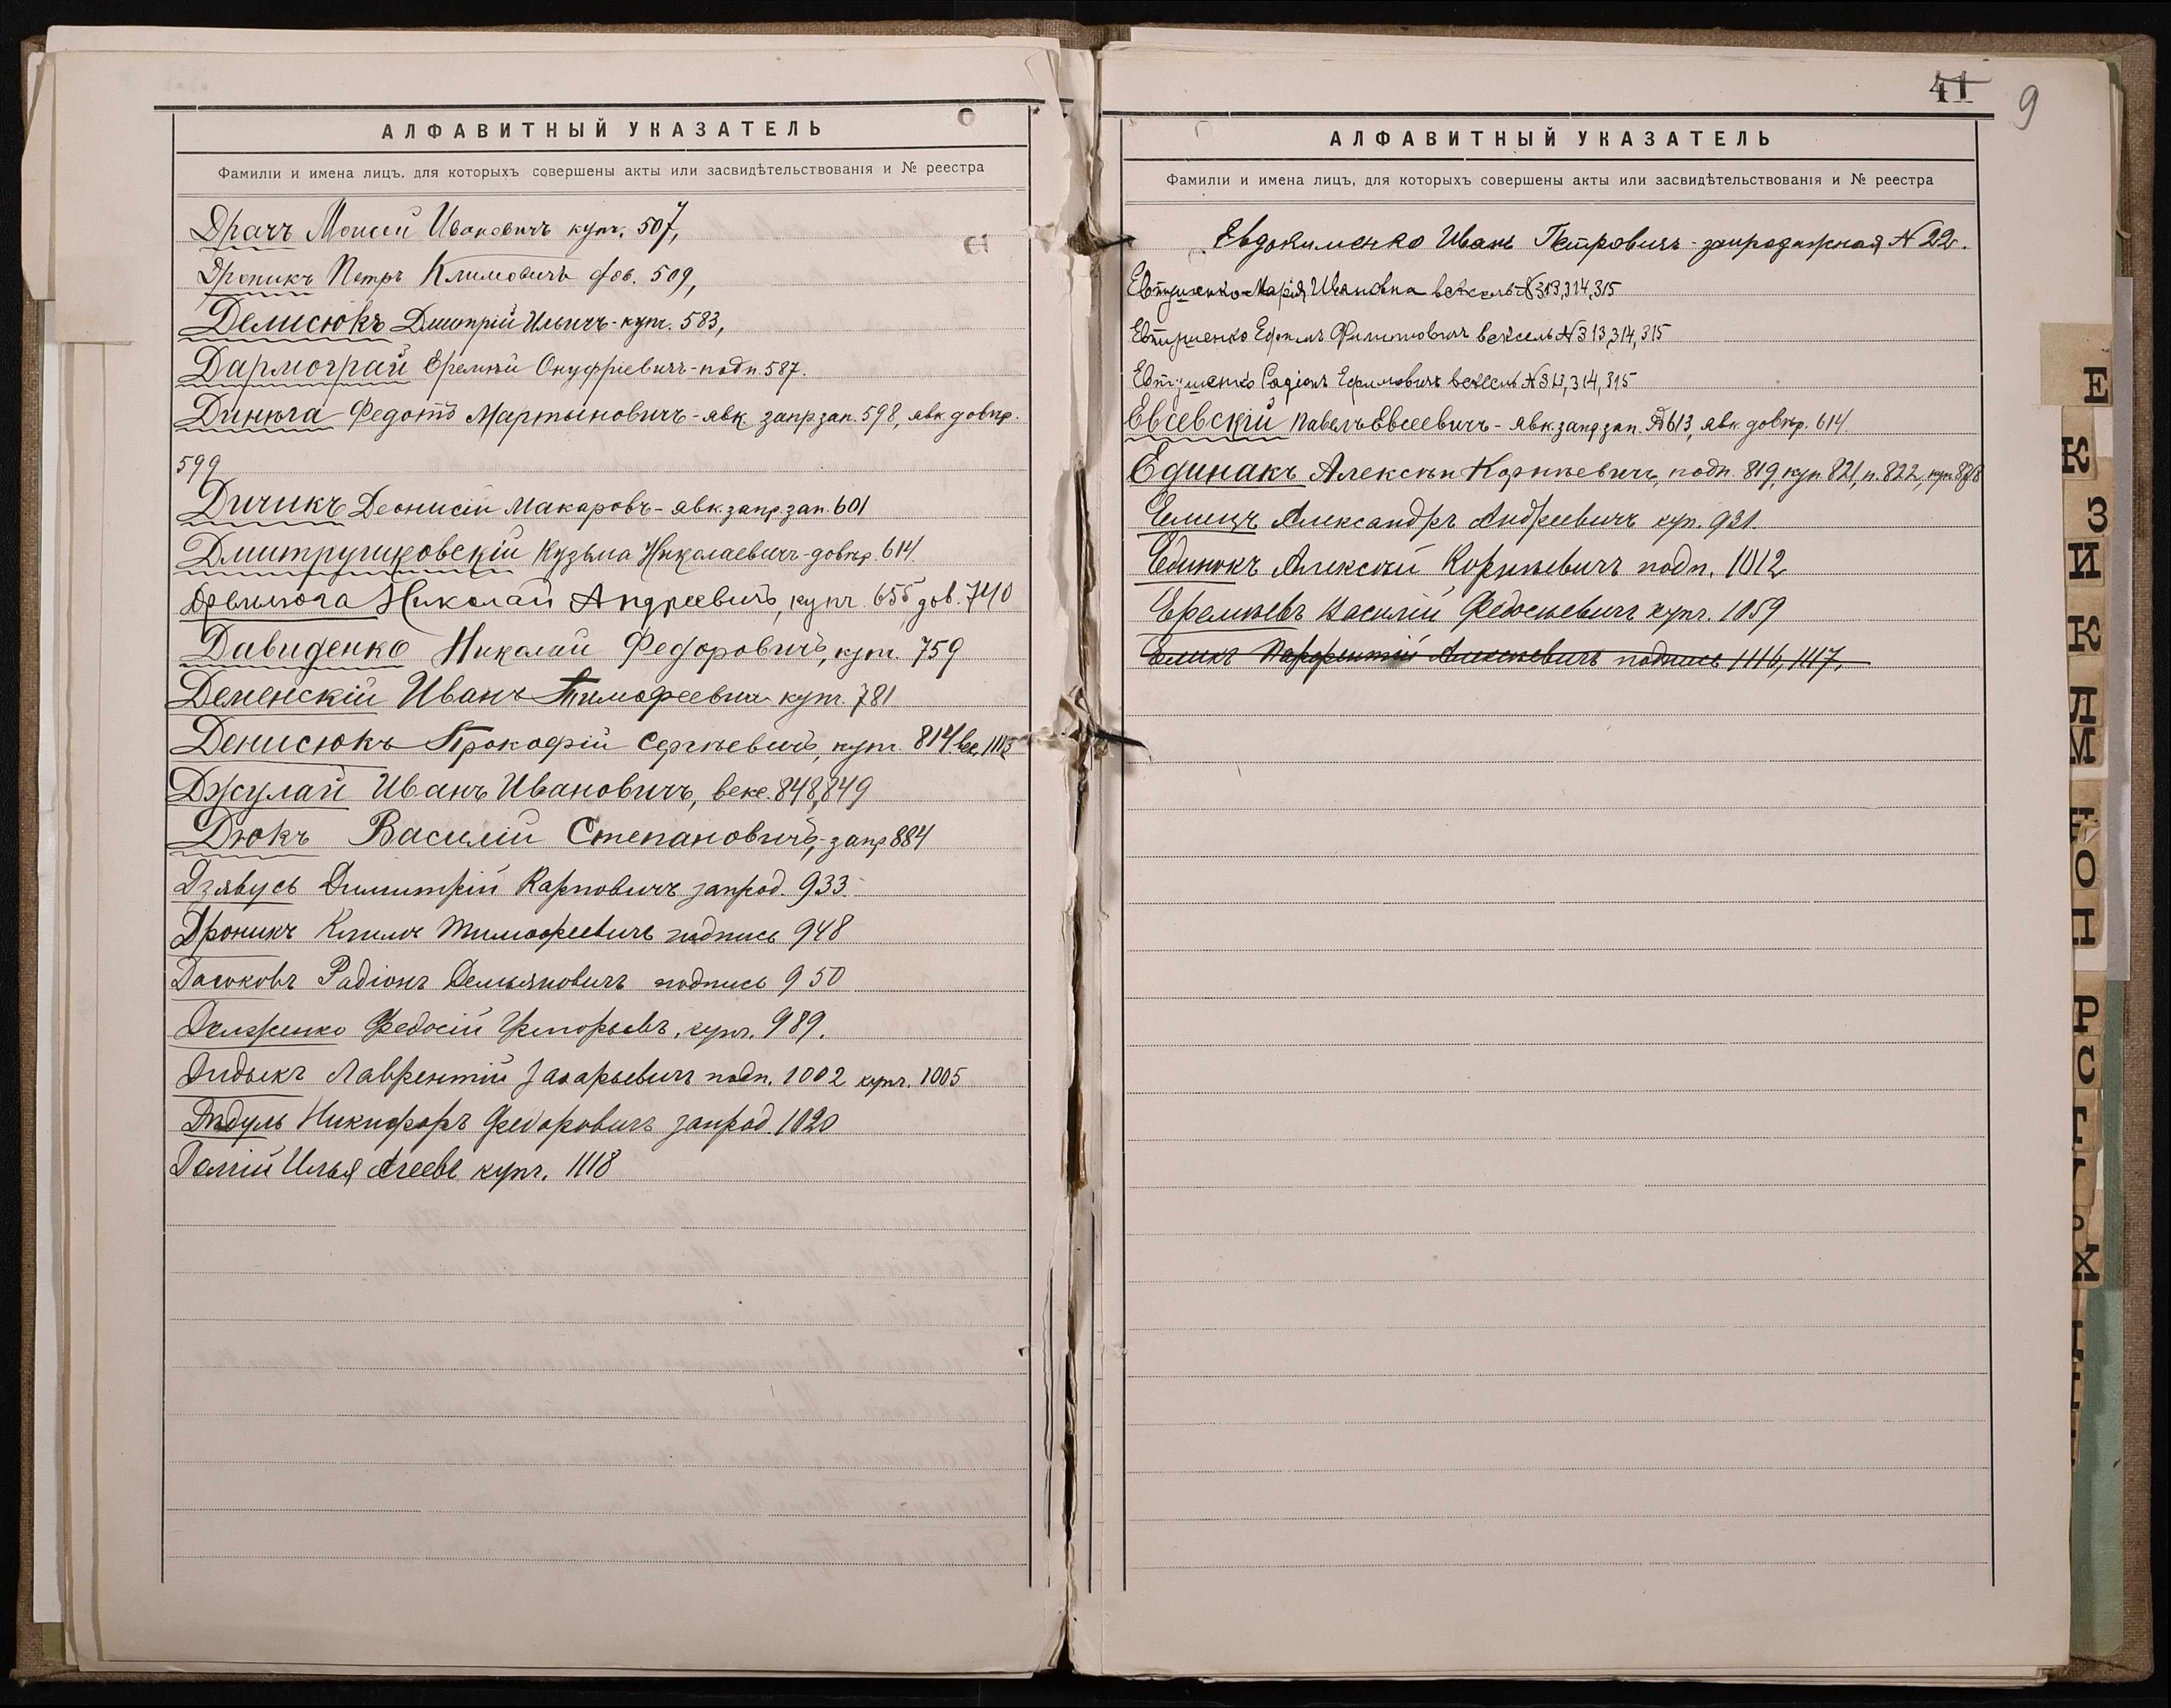 АЛФАВИТНЫЙ УКАЗАТЕЛЬ
Фамиліи и имена лицъ, для которыхъ совершены акты или засвидѣтельствованія и № реестра
Драчъ Моисей Ивановичъ купч. 507,
Дроникъ Петръ Климовичъ дов. 509,
Делисюкъ Дмитрій Ильичъ - купч. 583,
Дармограй Еремѣй Онуфріевичъ - подп. 587.
Динюга Федотъ Мартыновичъ - явк. запр зап. 598, явк довѣр.
599
Дичикъ Деонисій Макаровъ - явк. запр. зап. 601
Дмитричковскій Кузьма Николаевичъ - довѣр. 614.
Древлюга Николай Андреевичъ, купч. 655, дов. 740
Давиденко Николай Федоровичъ, купч. 759
Деменскій Иванъ Тимофеевичъ купч. 781
Денисюкъ Прокофій Сергѣевичъ, купч. 814, век. 1113
Джулай Иванъ Ивановичъ, векс. 848, 849
Дюкъ Василій Степановичъ, - запр 884
Дзявусь Димитрій Карповичъ запрод. 933.
Дроникъ Климъ Тимофеевичъ подпись 948
Радіонъ Демьяновичъ подпись 950
Федосій Григорьевъ. купч. 989.
Дидыкъ Лаврентій Захарьевичъ подп. 1002 купч. 1005
Дѣдуль Никифоръ Федоровичъ запрод. 1020
Илья Агеевъ купч. 1118
41
9
АЛФАВИТНЫЙ УКАЗАТЕЛЬ
Фамиліи и имена лицъ, для которыхъ совершены акты или засвидѣтельствованія и № реестра
Евдокименко Иванъ Петровичъ - запродажная № 22.
Евтушенко Марія Ивановна вексель № 313, 314, 315
Евтушенко Ефимъ Филиповичъ вексель № 313, 314, 315
Евтушенко Радіонъ Ефимовичъ вексель № 313, 314, 315
Евсевскій Павелъ Евсеевичъ - явк. запр зап. № 613, явк. довѣр. 614.
Единакъ Алексѣй Корнѣевичъ, подп. 819, куп. 821, п. 822, куп. 828
Елицъ Александръ Андреевичъ куп. 931.
Единокъ Алексѣй Корнѣевичъ подп. 1012
Еремѣевъ Василій Федосѣевичъ купч. 1059
Еликъ Парфентій Алексѣевичъ подпись 1116, 1117.
Е
К
З
И
К
Л
М
О
Р
С
Х